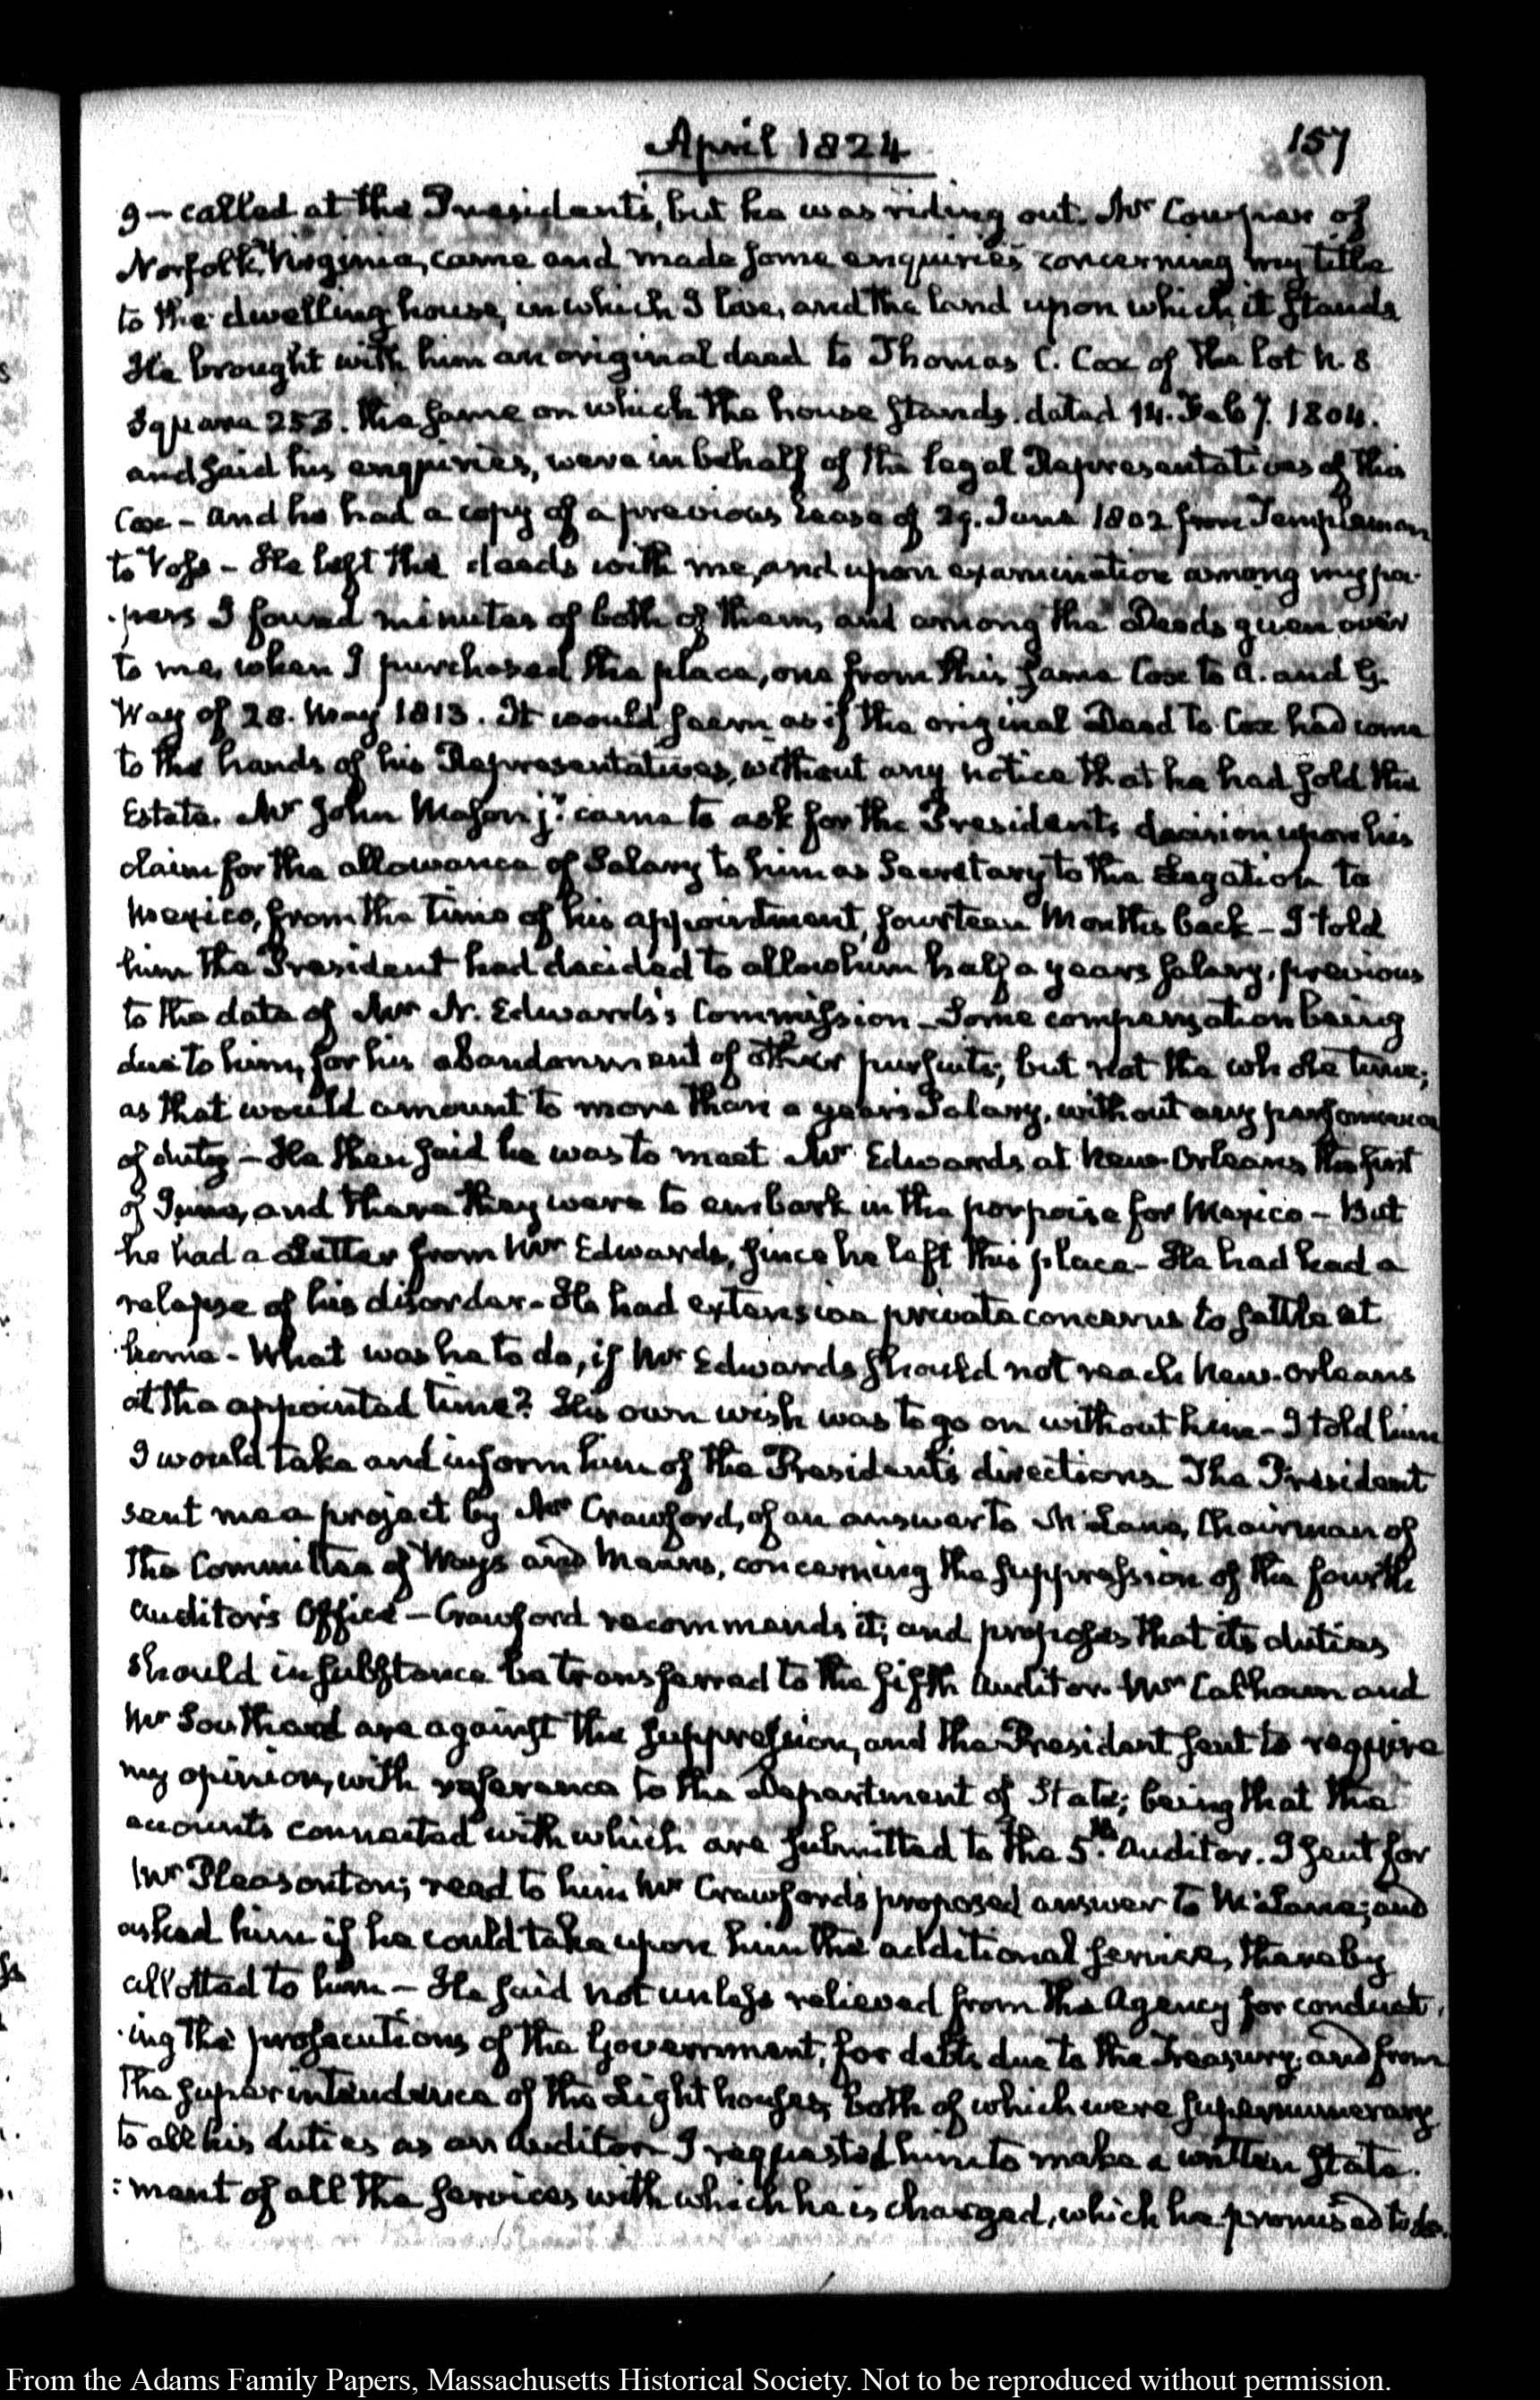 April 1824
157
I — called at the President's, but he was riding out. Mr Cowper of
Norfolk, Virginia, came and made some enquiries concerning my title
to the dwelling house, in which I live, and the land upon which it stands
He brought with him an original deed to Thomas C. Cox of the lot N. 8
Square 253. the same on which the house stands. dated 14. Feby. 1804.
and said his enquiries, were in behalf of the legal Representatives of this
Cox — and he had a copy of a previous Lease of 29. June 1802 from Templeman
to Voss — He left the deeds with me, and upon examination among my pa-
-pers I found minutes of both of them, and among the Deeds given over
to me, when I purchased the place, one from this same Cox to A. and G.
Way of 28. May 1813. It would seem as if the original Deed to Cox had come
to the hands of his Representatives, without any notice that he had sold the
Estate. Mr John Mason jr. came to ask for the President's decision upon his
claim for the allowance of Salary to him as Secretary to the Legation to
Mexico, from the time of his appointment, fourteen Months back — I told
him the President had decided to allow him half a years salary, previous
to the date of Mr N. Edwards's Commission — Some compensation being
due to him, for his abandonment of other pursuits; but not the whole time;
as that would amount to more than a year's Salary, without any performance
of duty — He then said he was to meet Mr Edwards at New-Orleans the first
of June, and there they were to embark in the porpoise for Mexico — But
he had a Letter from Mr Edwards, since he left this place — He had had a
relapse of his disorder — He had extensive private concerns to settle at
home — What was he to do, if Mr Edwards should not reach New-Orleans
at the appointed time? His own wish was to go on without him — I told him
I would take and inform him of the President's directions. The President
sent me a project by Mr Crawford, of an answer to McLane, Chairman of
the Committee of Ways and Means, concerning the suppression of the fourth
Auditor's Office — Crawford recommends it; and proposes that its duties
should in substance be transferred to the fifth Auditor. Mr Calhoun and
Mr Southard are against the suppression, and the President sent to require
my opinion, with reference to the Department of State; being that the
accounts connected with which are submitted to the 5.th Auditor. I sent for
Mr Pleasonton; read to him Mr Crawford's proposed answer to McLane; and
asked him if he could take upon him the additional service, thereby
allotted to him — He said not unless relieved from the Agency for conduct-
-ing the prosecutions of the Government, for debts due to the Treasury; and from
the superintendence of the Light houses, both of which were supernumerary
to all his duties as an Auditor. I requested him to make a written state-
:ment of all the services with which he is charged, which he promised to do.
From the Adams Family Papers, Massachusetts Historical Society. Not to be reproduced without permission.